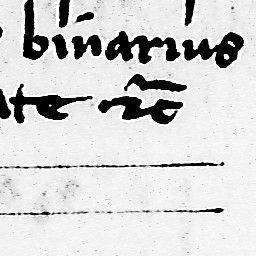 binarius
ate ⁊c̄